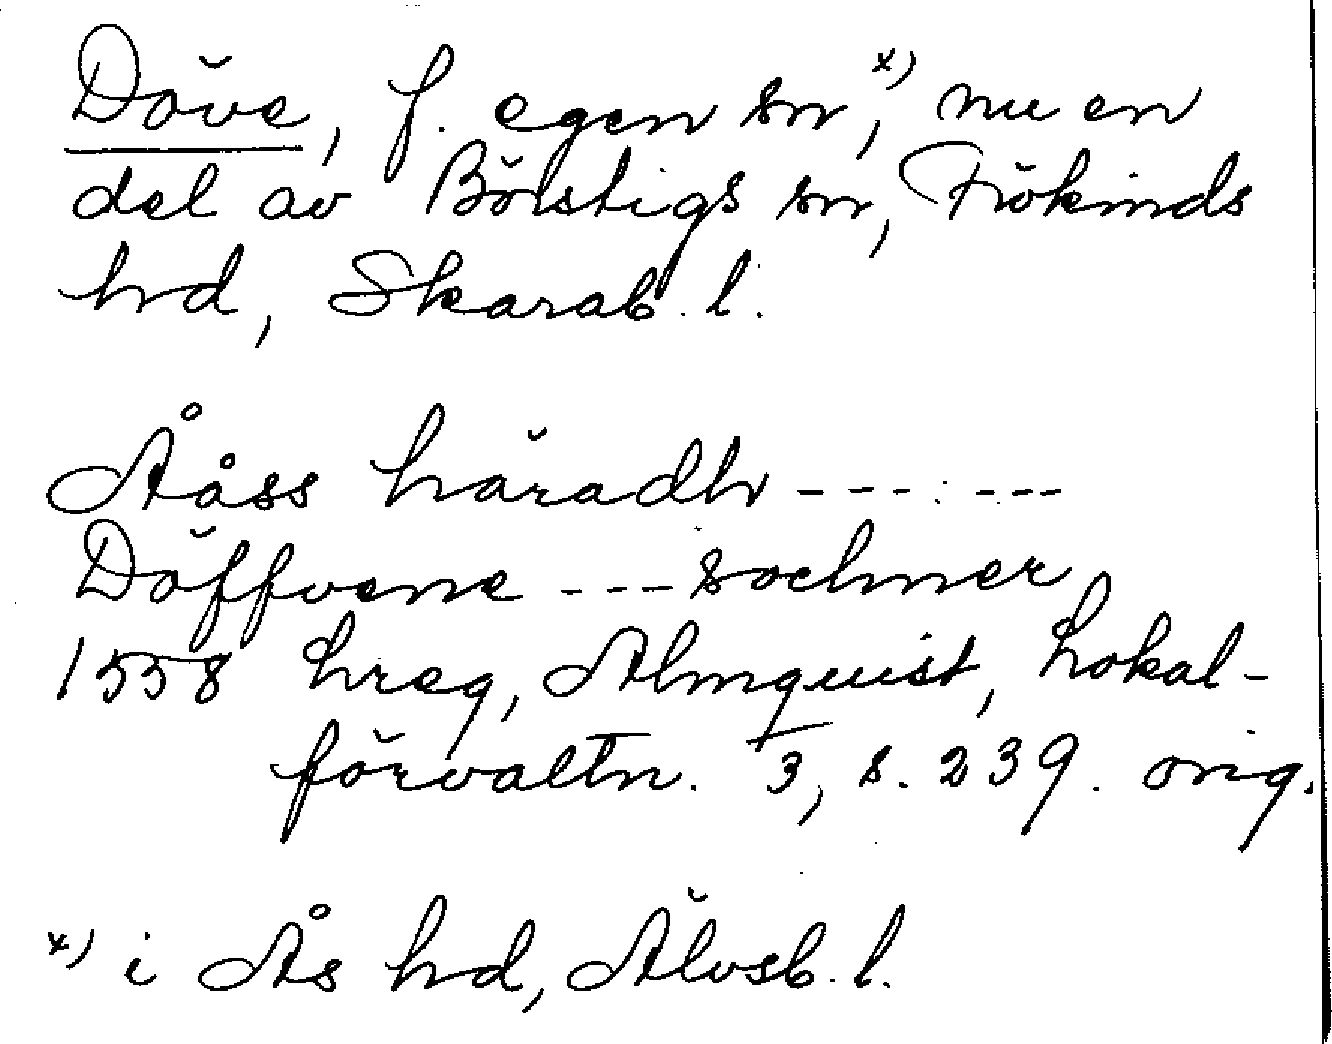 Döve, f. egen sn,x) nu en
del av Börstigs sn, Frökinds
hd, Skarab. l.
Åååss häradh ---.---
Döffvene --- sochner
1558 hreg, Almquist, Lokal-
förvaltn. 3, s. 239. orig.
x) i Ås hd, Älvsb. l.